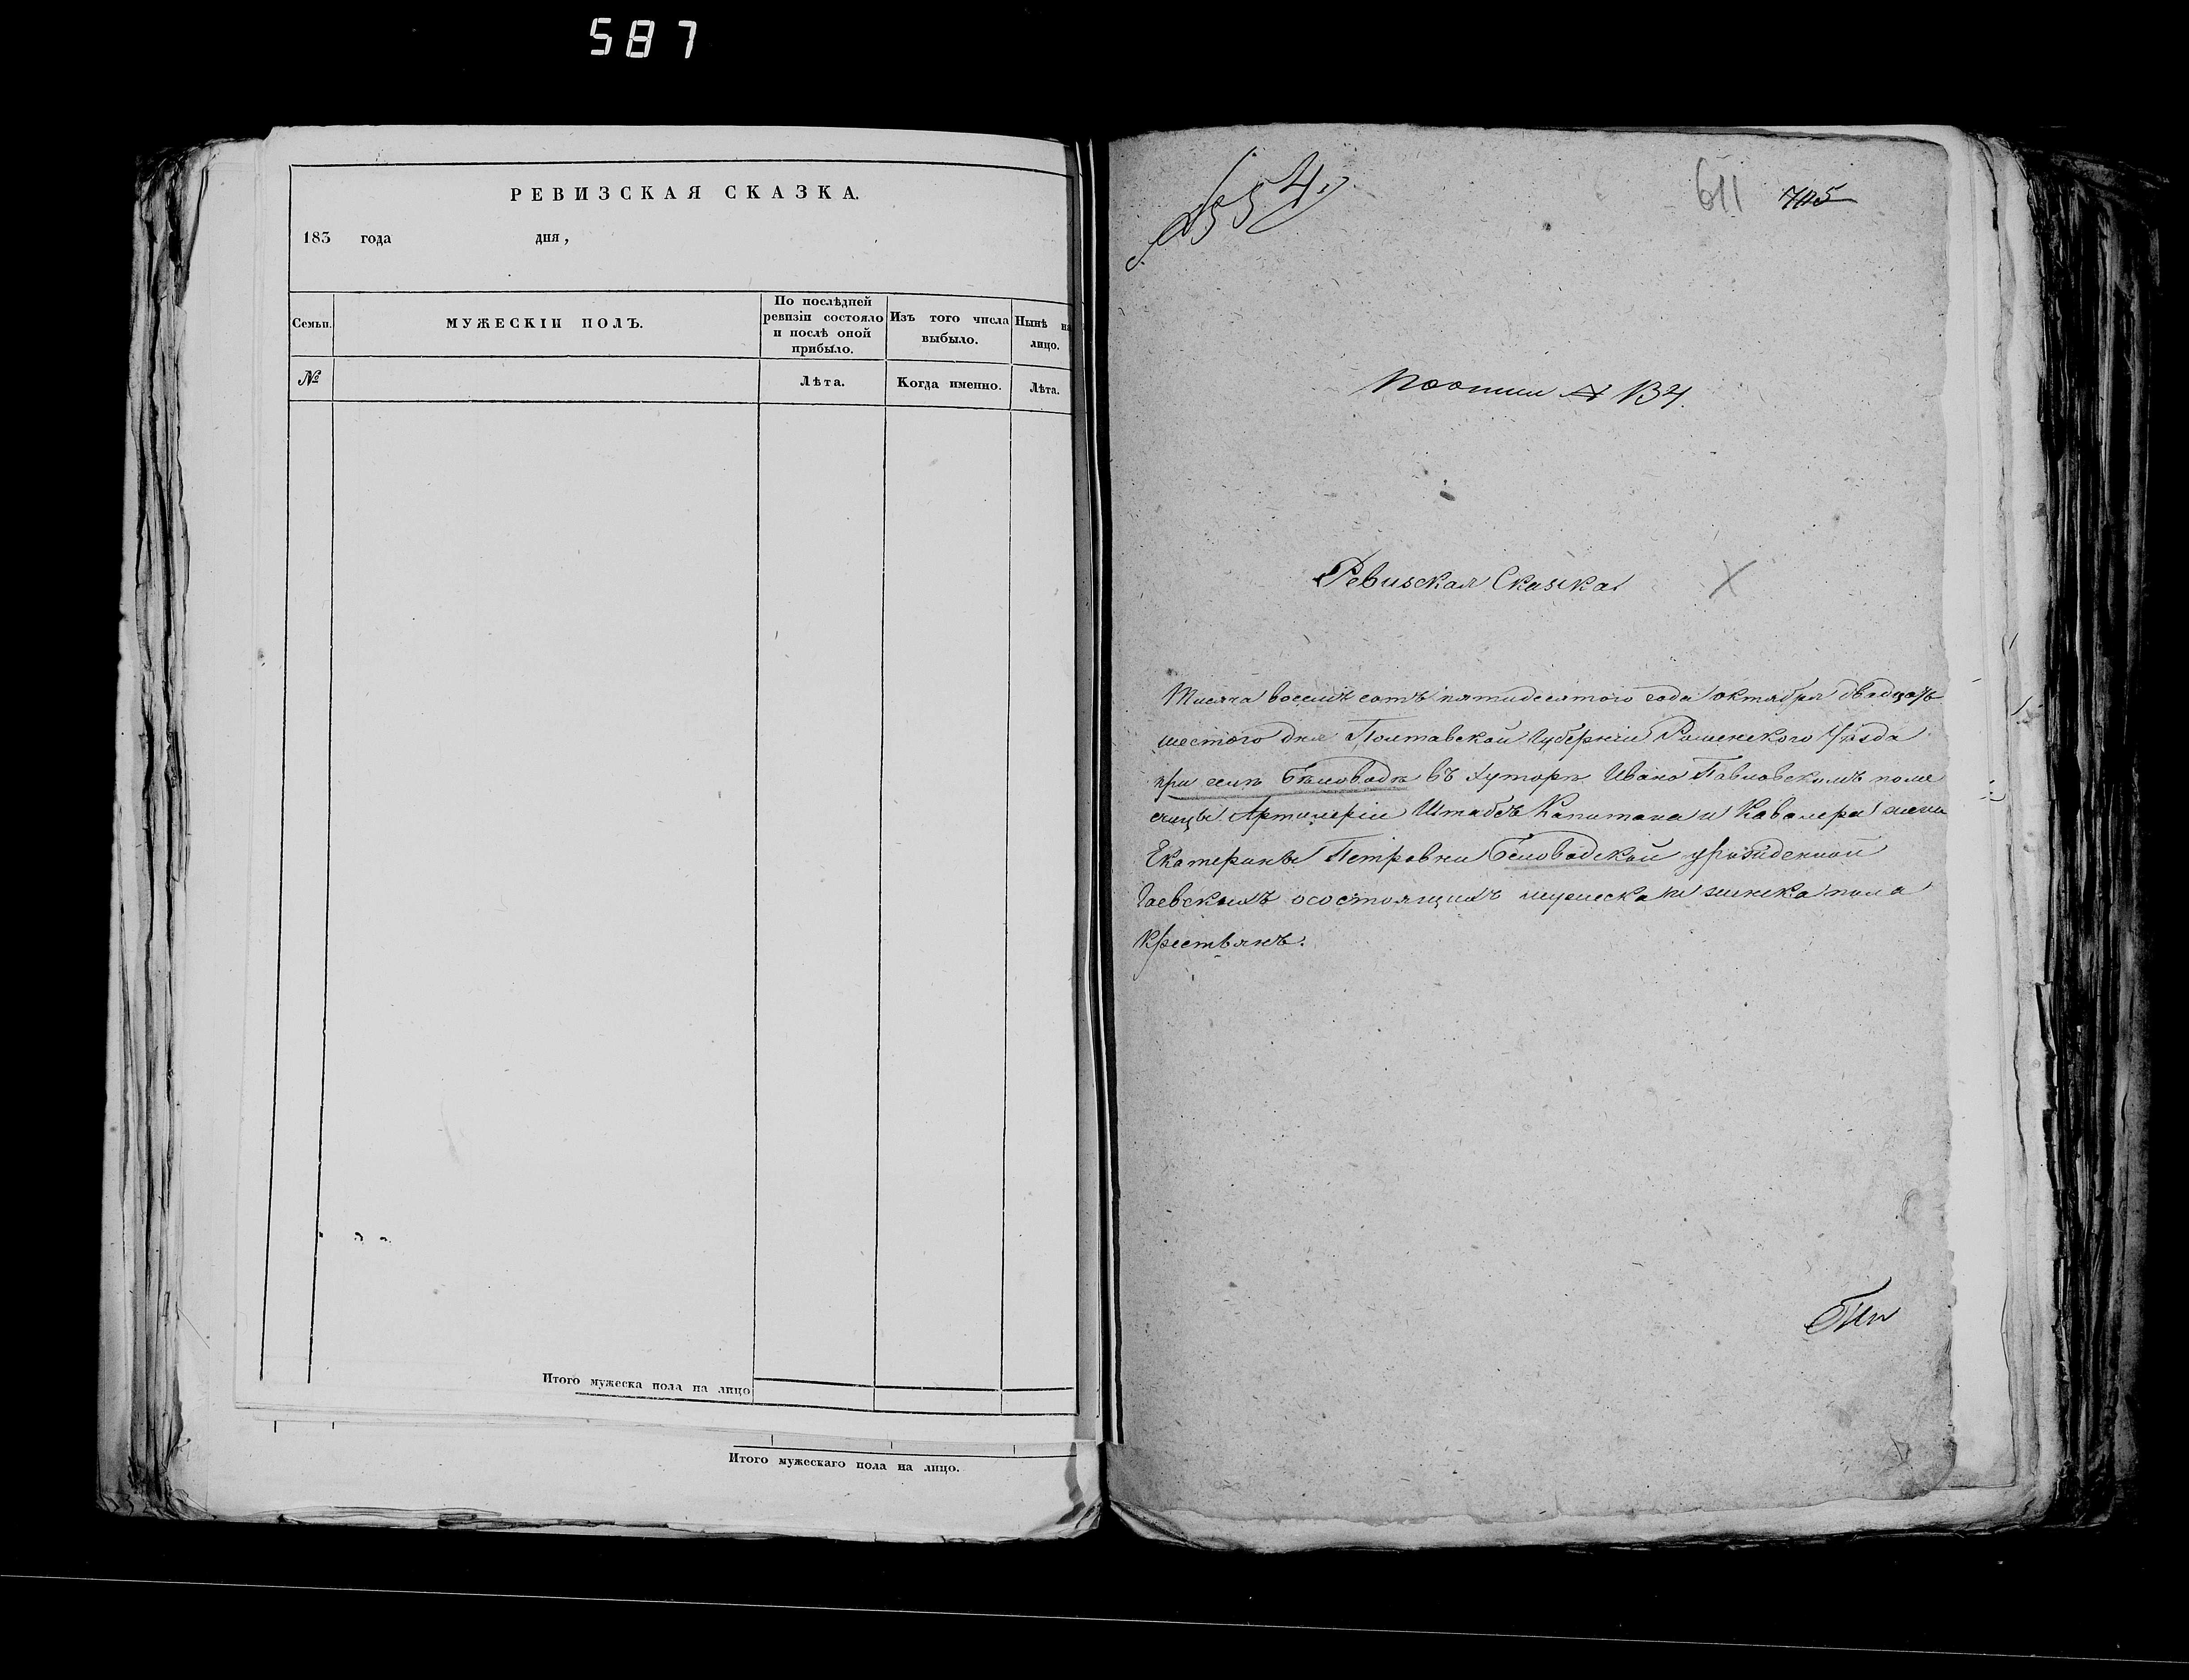 587
РЕВИЗСКАЯ СКАЗКА.
183 года дня,
Семьи.
МУЖЕСКІЙ ПОЛЪ.
По послѣдней
ревизіи состояло
и послѣ оной
прибыло.
Изъ того числа
выбыло.
Нынѣ на
лицо.
№
Лѣта.
Когда именно.
Лѣта.
Итого мужеска пола на лицо
Итого мужескаго пола на лицо.
611 705
Ревизская Сказка
Тисяча восемъ сотъ пятидесятого года октября двадцать
шестого дня Полтавской Губерніи Роменского Уѣзда
при селѣ Бѣловодѣ въ хуторѣ Ивано Павловскомъ поме
щицы Артилеріи Штабсъ Капитана и Кавалера жены
Екатерины Петровны Беловодской урожденной
Гаевскихъ осостоящихъ мужеска и женска пола
крестьянъ.